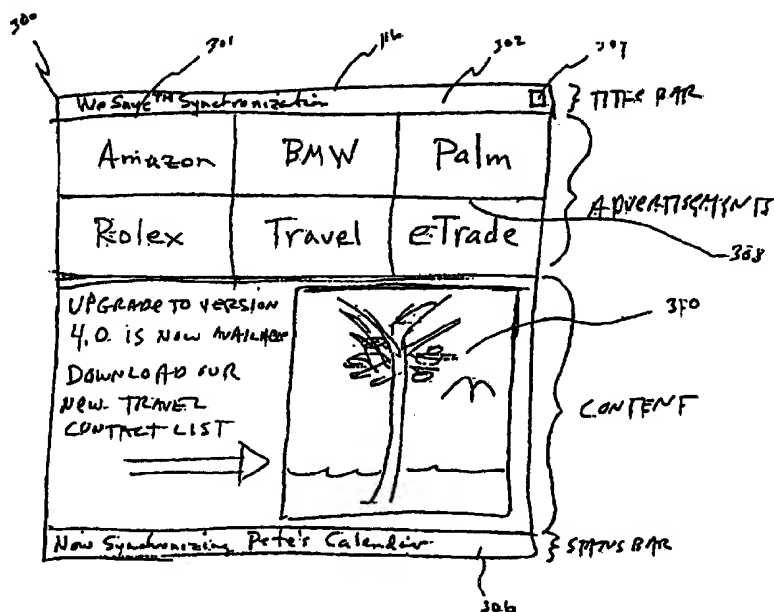 300
301
116
302
307
WeSync™ Synchronization
TITLE BAR
Amazon BMW Palm
ADVERTISEMENTS
Rolex Travel eTrade
308
UPGRADE TO VERSION
4.0. IS NOW AVAILABLE
310
DOWNLOAD OUR
NEW TRAVEL
CONTACT LIST
CONTENT
Now Synchronizing Pete's Calendar
STATUS BAR
306